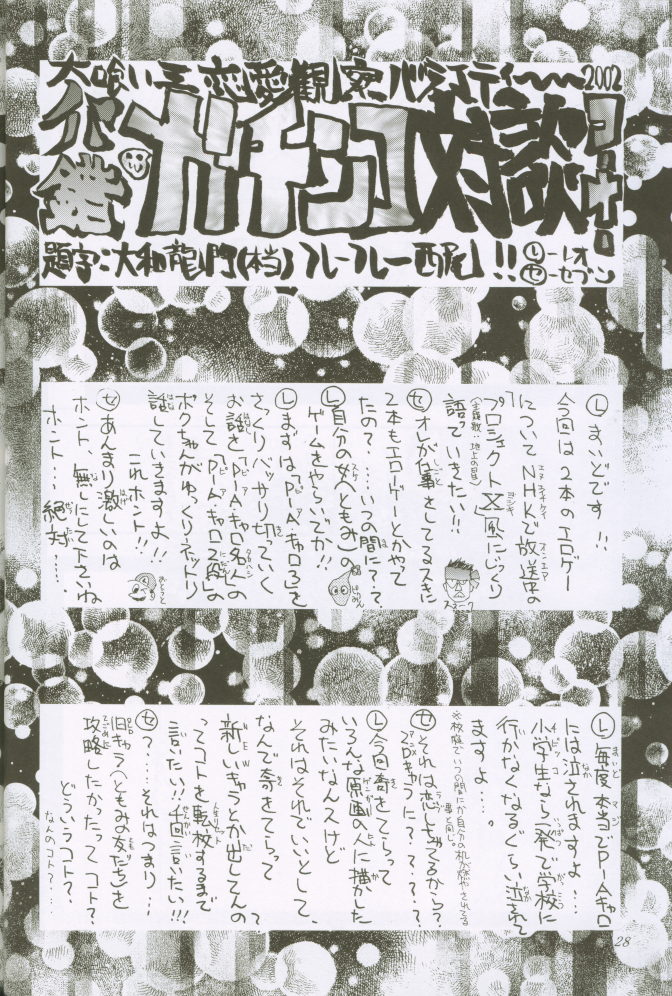 大喰い王恋愛観察バラエティ〜〜2002
ガチンコ対談
題字:大和龍門(本当)フレーフレー西尾!!
Ⓛ-レオ
セ-セブン
Ⓛまいどです!!
今回は2本のエロゲー
についてNHKで放送中の
「プロジェクトX」風にじっくり
語っていきたい!!
セオレが仕事をしてるスキに
2本もエロゲーとかやって
たの?…いつの間に??
Ⓛ自分の女(ともみ)の
ゲームをやらいでか!!
Ⓛまずは、「Pia・キャロ3」を
さっくりバッサリ切っていく
お話を「Pia・キャロ名人」の
そして「Pia・キャロ2」の
ボクちゃんがゆっくりネットリ
話していきますよ!!
これホント!!
おとうと
セあ、あんまり激しいのは
ホント、無しにして下さいね
ホント…絶対…。
Ⓛ毎度本当でPiaキャロ
には泣かされますよ…
小学生なら一発で学校に
行かなくなるぐらい泣かされ
ますよ…。
※教室でいつの間にか自分の机が
セそれは恋しちゃってるから?
二次キャラに????
Ⓛ今回奇をてらって
いろんな原画の人に描かした
みたいなんスけど
それはそれでいいとして、
なんで奇をてらって
新しいきゃらとか出してんの?
ってコトを転校するまで
言いたい!!千回言いたい!!!
セ?…それはつまり…
旧きゃら(ともみの友だち)を
攻略したかたってコト?
どういうコト?
なんのコト?…
28